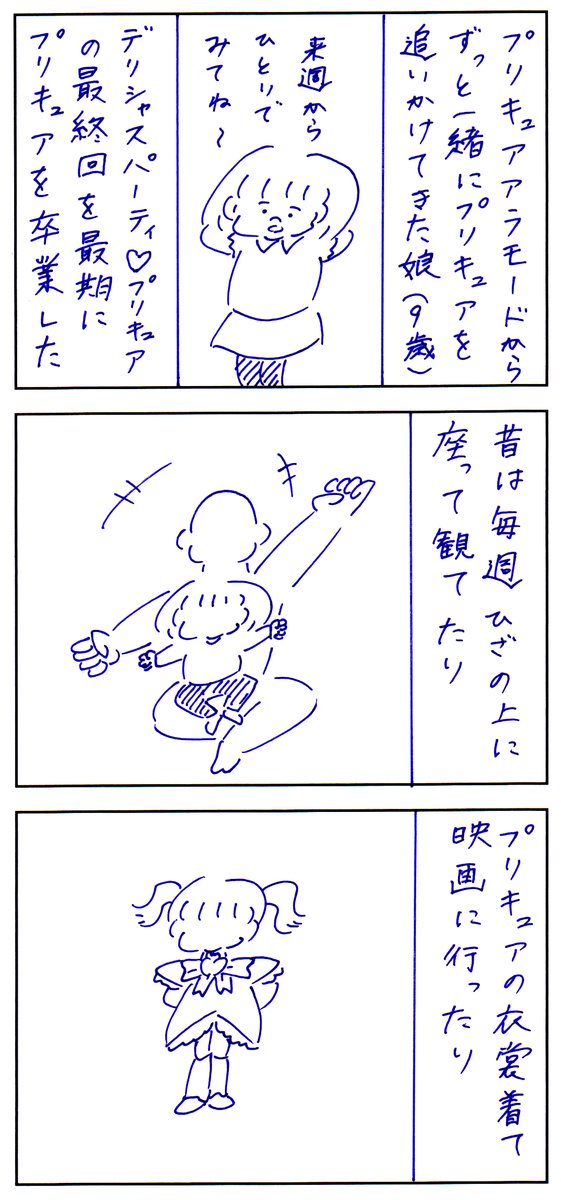 プリキュアアラモードから
ずっと一緒にプリキュアを
追いかけてきた娘(9歳)
来週から
ひとりで
みてね～
デリシャスパーティ♡プリキュア
の最終回を最期に
プリキュアを卒業した
昔は毎週ひざの上に
座って観てたり
プリキュアの衣裳着て
映画に行ったり